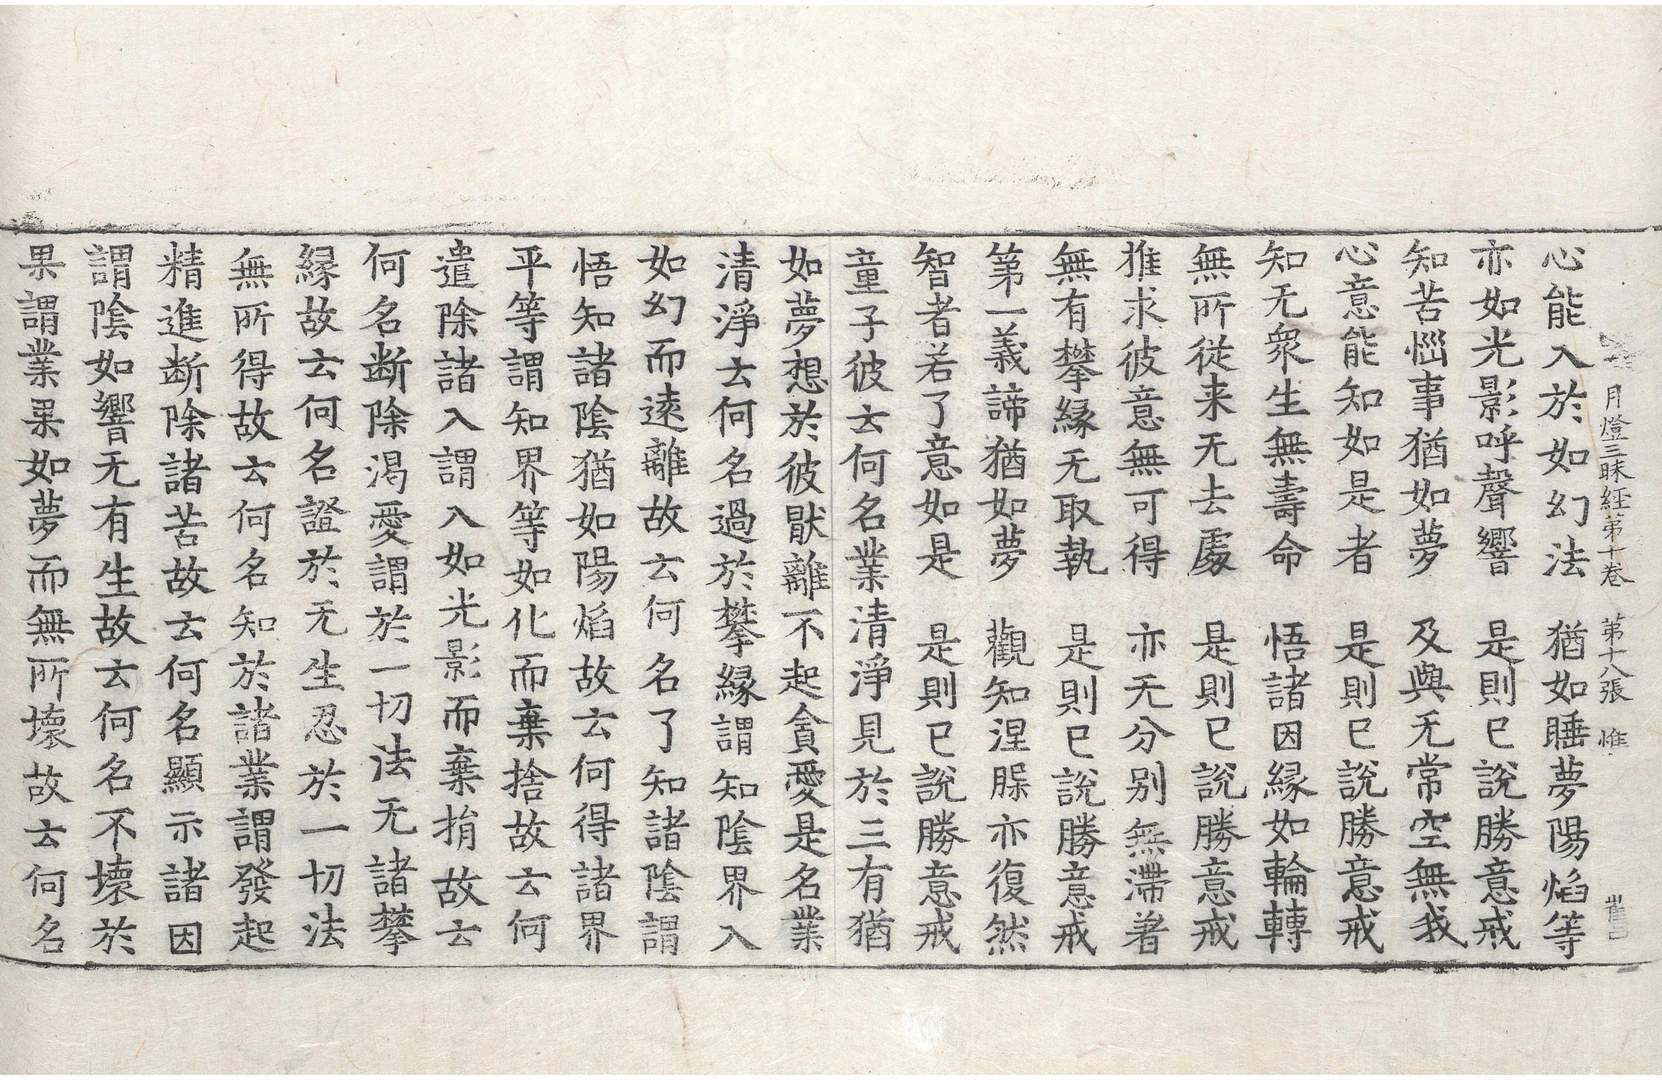 月燈三昧經第十卷　第十八張　惟
心能入於如幻法　猶如睡夢陽焰等
亦如光影呼聲響　是則已說勝意戒
知苦惱事猶如夢　及與无常空無我
心意能知如是者　是則已說勝意戒
知无衆生無壽命　悟諸因緣如輪轉
無所從来无去處　是則已說勝意戒
推求彼意無可得　亦无分別無滯著
無有攀緣无取執　是則已說勝意戒
第一義諦猶如夢　觀知涅槃亦復然
智者若了意如是　是則已說勝意戒
童子彼云何名業清淨見於三有猶
如夢想於彼猒離不起貪愛是名業
清淨云何名過於攀緣謂知陰界入
如幻而遠離故云何名了知諸陰謂
悟知諸陰猶如陽焰故云何得諸界
平等謂知界等如化而棄捨故云何
遣除諸入謂入如光影而棄捐故云
何名断除渴愛謂於一切法无諸攀
緣故云何名證於无生忍於一切法
無所得故云何名知於諸業謂發起
精進断除諸苦故云何名顯示諸因
謂陰如響无有生故云何名不壞於
果謂業果如夢而無所壞故云何名